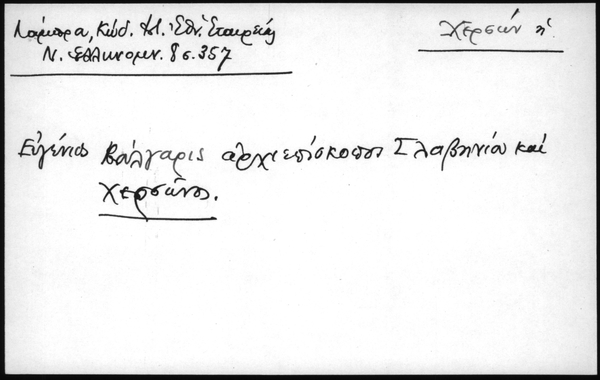 Λάμπρα, Κώδ. Ἱστ. Ἐθν. Ἑταιρείας
Ν. Ἑλληνομν. 8 σ. 357
Χερσών ἡ
Εὐγένιος Βούλγαρις ἀρχιεπίσκοπος Σλαβηνίου καὶ
Χερσῶνος.